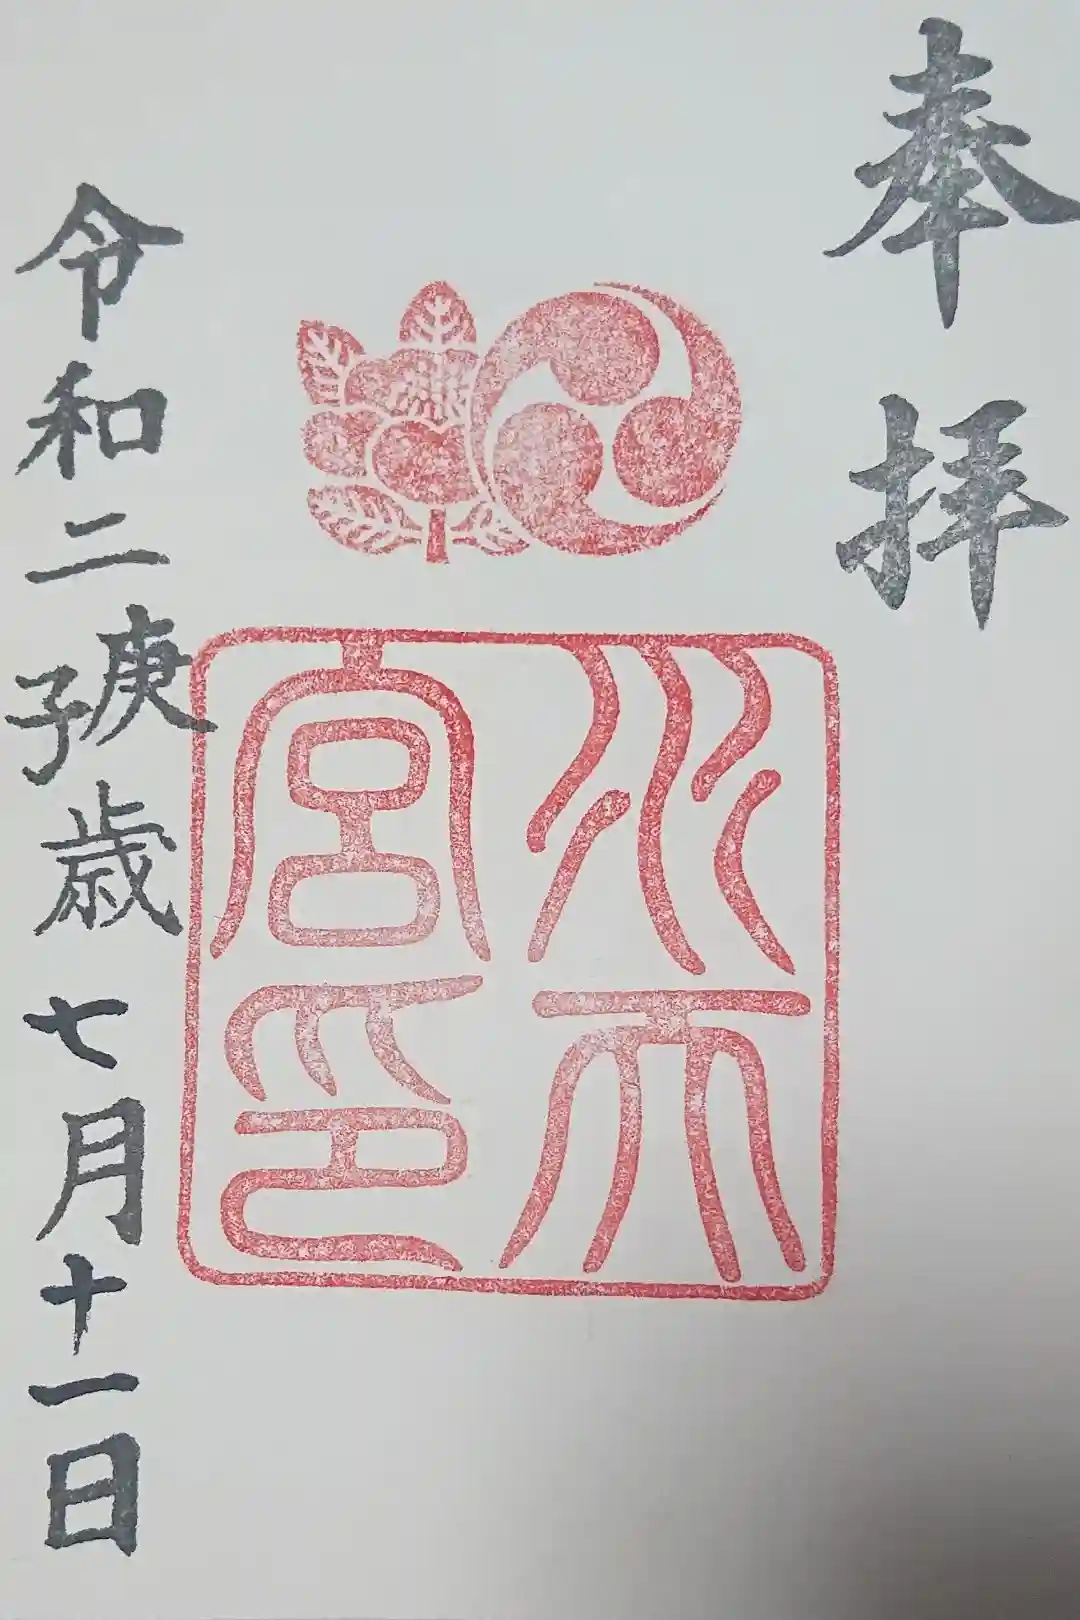 奉拝
水天
宮印
令和二庚子歳七月十一日